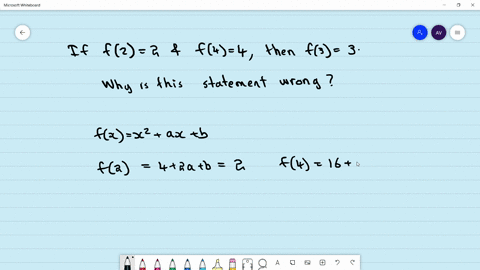 Microsoft Whiteboard
AV
If f(2)=2 & f(4)=4, then f(3)=3.
Why is this statement wrong?
f(x)=x²+ax+b
f(2) = 4+2a+b = 2 f(4) = 16+